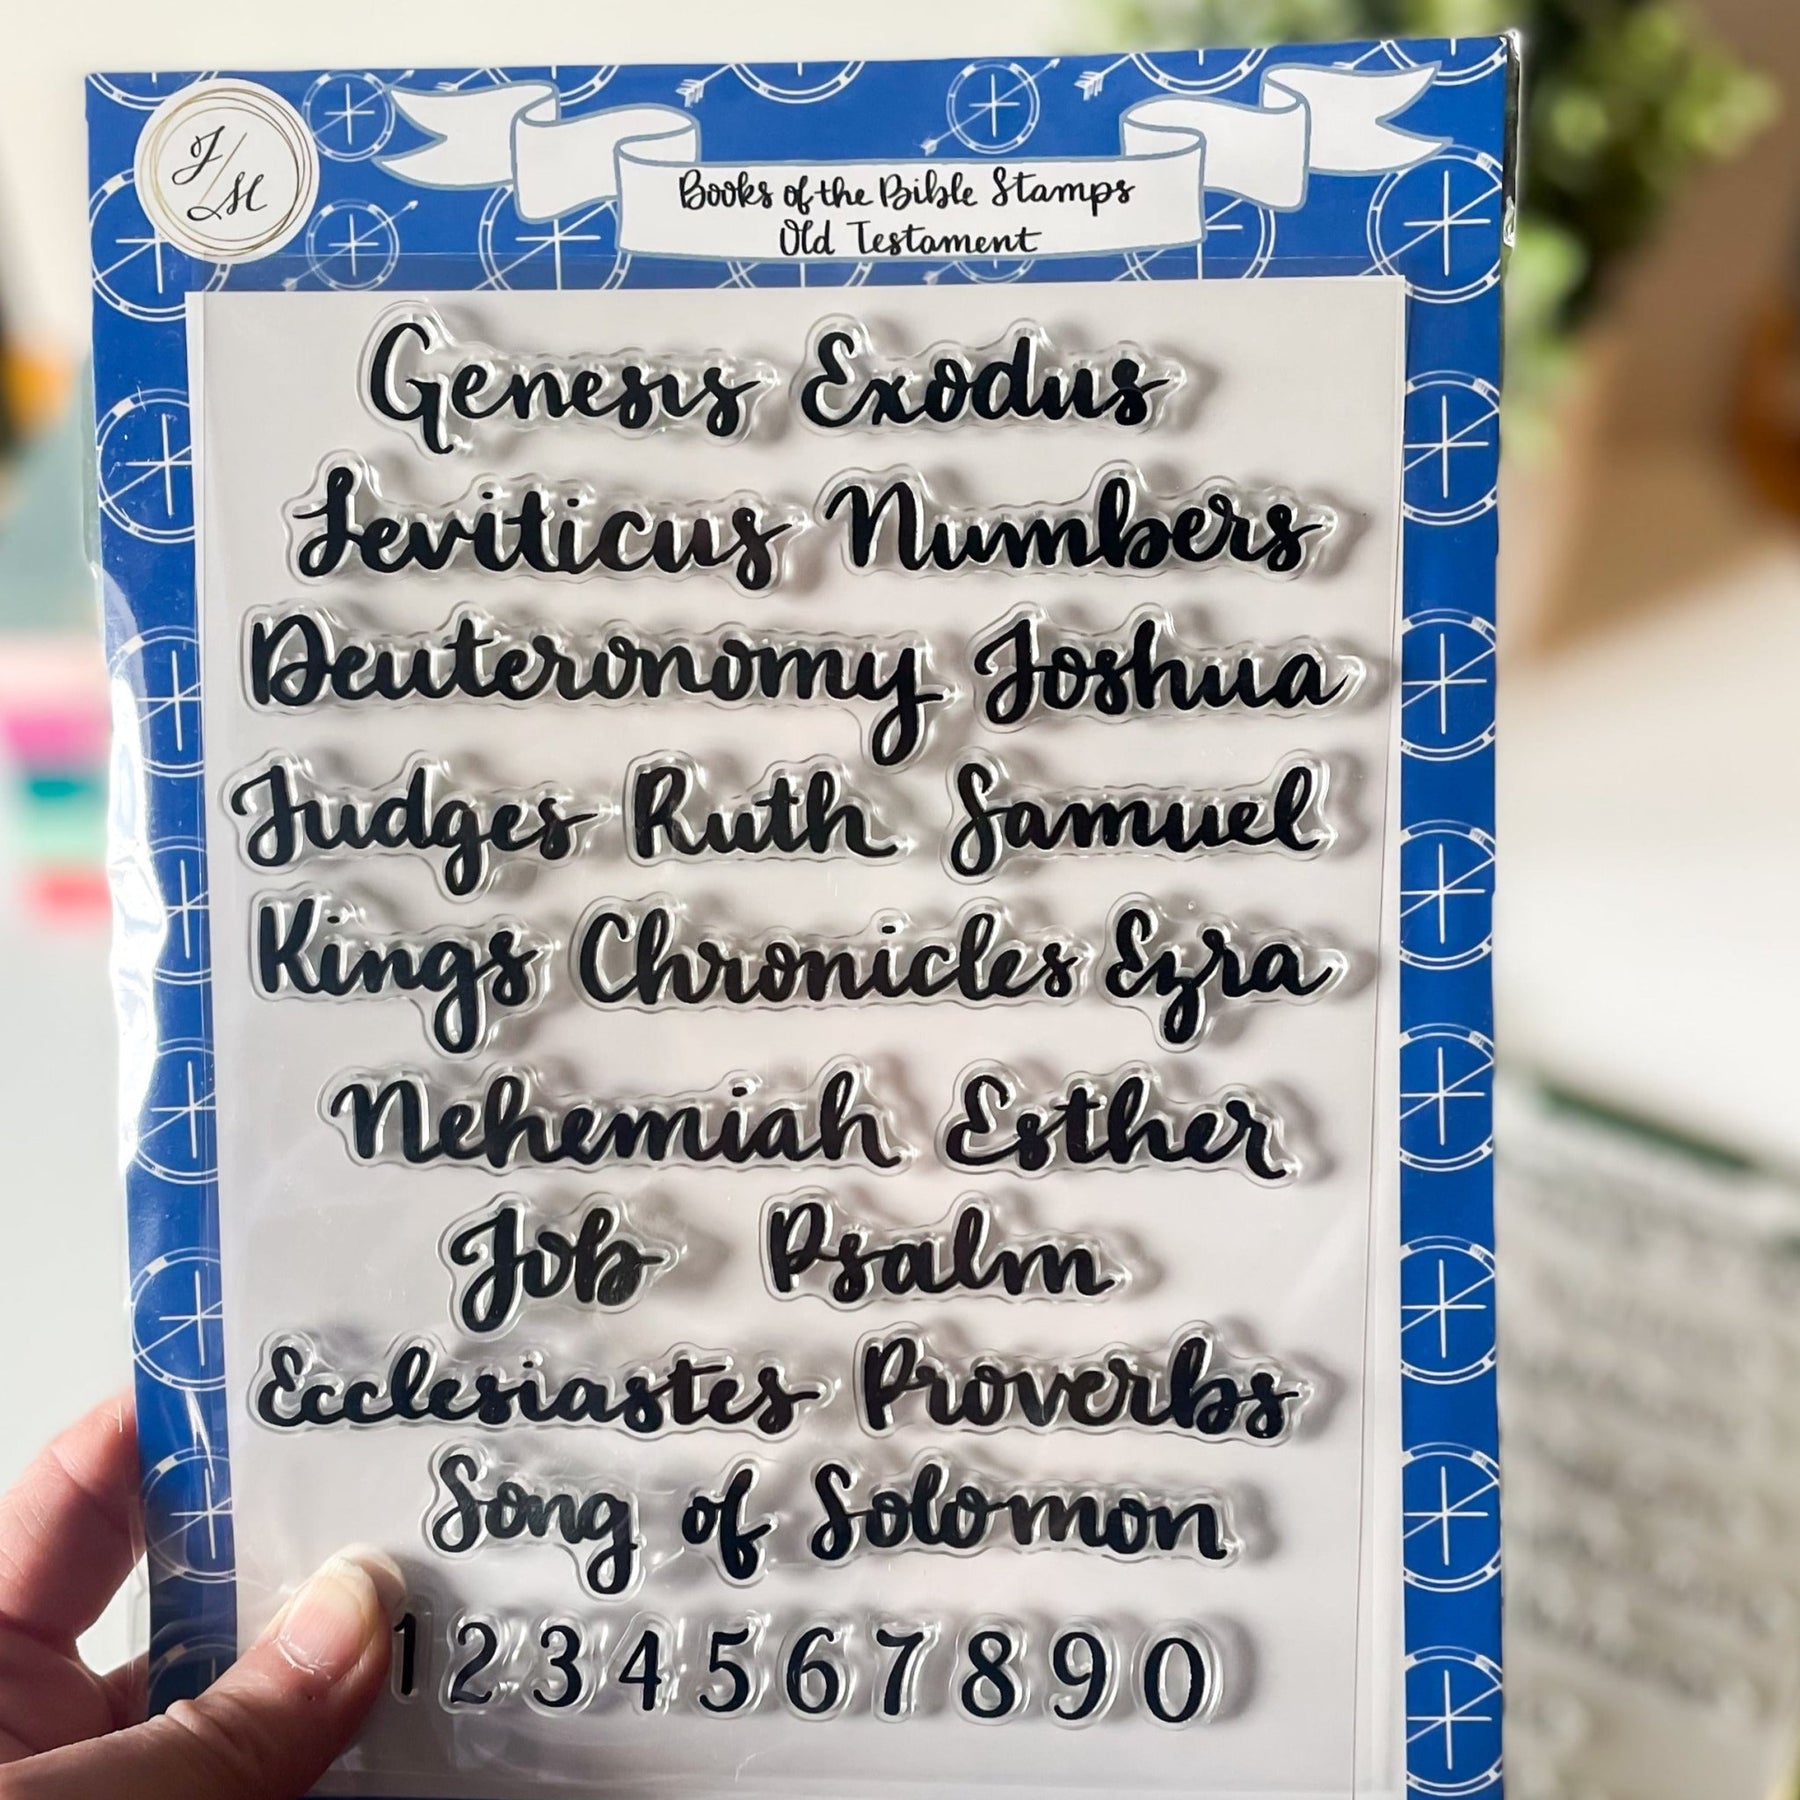 J/M
Books of the Bible Stamps
Old Testament
Genesis Exodus
Leviticus Numbers
Deuteronomy Joshua
Judges Ruth Samuel
Kings Chronicles Ezra
Nehemiah Esther
Job Psalm
Ecclesiastes Proverbs
Song of Solomon
1 2 3 4 5 6 7 8 9 0